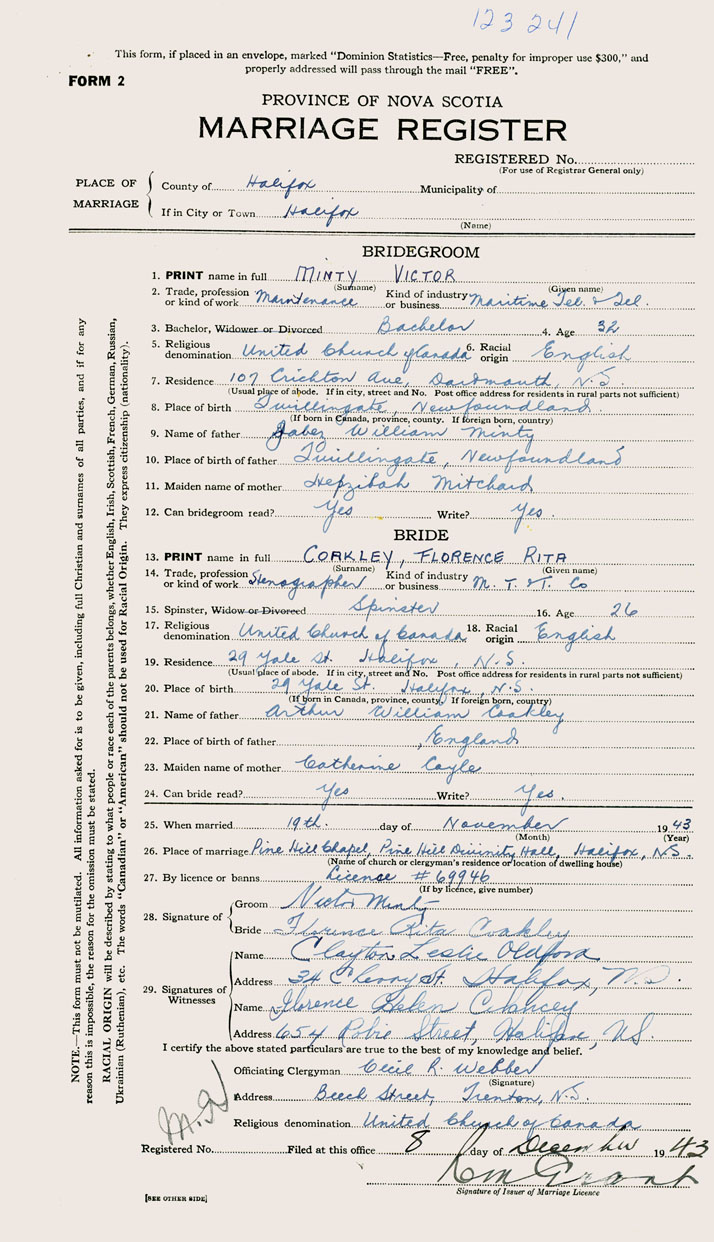 123 241
This form, if placed in an envelope, marked "Dominion Statistics—Free, penalty for improper use $300," and
properly addressed will pass through the mail "FREE".
FORM 2
PROVINCE OF NOVA SCOTIA
MARRIAGE REGISTER
REGISTERED No.
(For use of Registrar General only)
PLACE OF MARRIAGE
County of Halifax Municipality of
If in City or Town Halifax
(Name)
BRIDEGROOM
1. PRINT name in full MINTY VICTOR
(Surname) (Given name)
2. Trade, profession or kind of work Maintenance Kind of industry or business Maritime Tel. & Tel.
3. Bachelor, Widower or Divorced Bachelor 4. Age 32
5. Religious denomination United Church of Canada 6. Racial origin English
7. Residence 107 Crichton Ave, Dartmouth, N.S.
(Usual place of abode. If in city, street and No. Post office address for residents in rural parts not sufficient)
8. Place of birth Twillingate, Newfoundland.
(If born in Canada, province, county. If foreign born, country)
9. Name of father Jabez William Minty
10. Place of birth of father Twillingate, Newfoundland
11. Maiden name of mother Hepzibah Mitchard
12. Can bridegroom read? Yes Write? Yes.
BRIDE
13. PRINT name in full COAKLEY, FLORENCE RITA
(Surname) (Given name)
14. Trade, profession or kind of work Stenographer Kind of industry or business M. T. & T. Co
15. Spinster, Widow or Divorced Spinster 16. Age 26
17. Religious denomination United Church of Canada 18. Racial origin English
19. Residence 29 Yale St. Halifax, N.S.
(Usual place of abode. If in city, street and No. Post office address for residents in rural parts not sufficient)
20. Place of birth 29 Yale St. Halifax, N.S.
(If born in Canada, province, county. If foreign born, country)
21. Name of father Arthur William Coakley
22. Place of birth of father England
23. Maiden name of mother Catherine Coyle
24. Can bride read? Yes Write? Yes.
25. When married 19th. day of November 1943
(Month) (Year)
26. Place of marriage Pine Hill Chapel, Pine Hill Divinity Hall, Halifax, N.S.
(Name of church or clergyman's residence or location of dwelling house)
27. By licence or banns Licence # 69946
(If by licence, give number)
28. Signature of
Groom Victor Minty
Bride Florence Rita Coakley
29. Signatures of Witnesses
Name Clayton Leslie Oldford
Address 34 Cherry St. Halifax, N.S.
Name Florence Helen Chancey
Address 654 Robie Street, Halifax, N.S.
I certify the above stated particulars are true to the best of my knowledge and belief.
Officiating Clergyman Cecil R. Webber
(Signature)
Address Beech Street, Trenton, N.S.
Religious denomination United Church of Canada
Registered No. Filed at this office 8 day of December 1943
Signature of Issuer of Marriage Licence
[SEE OTHER SIDE]
NOTE.—This form must not be mutilated. All information asked for is to be given, including full Christian and surnames of all parties, and if for any
reason this is impossible, the reason for the omission must be stated.
RACIAL ORIGIN will be described by stating to what people or race each of the parents belongs, whether English, Irish, Scottish, French, German, Russian,
Ukrainian (Ruthenian), etc. The words "Canadian" or "American" should not be used for Racial Origin. They express citizenship (nationality).